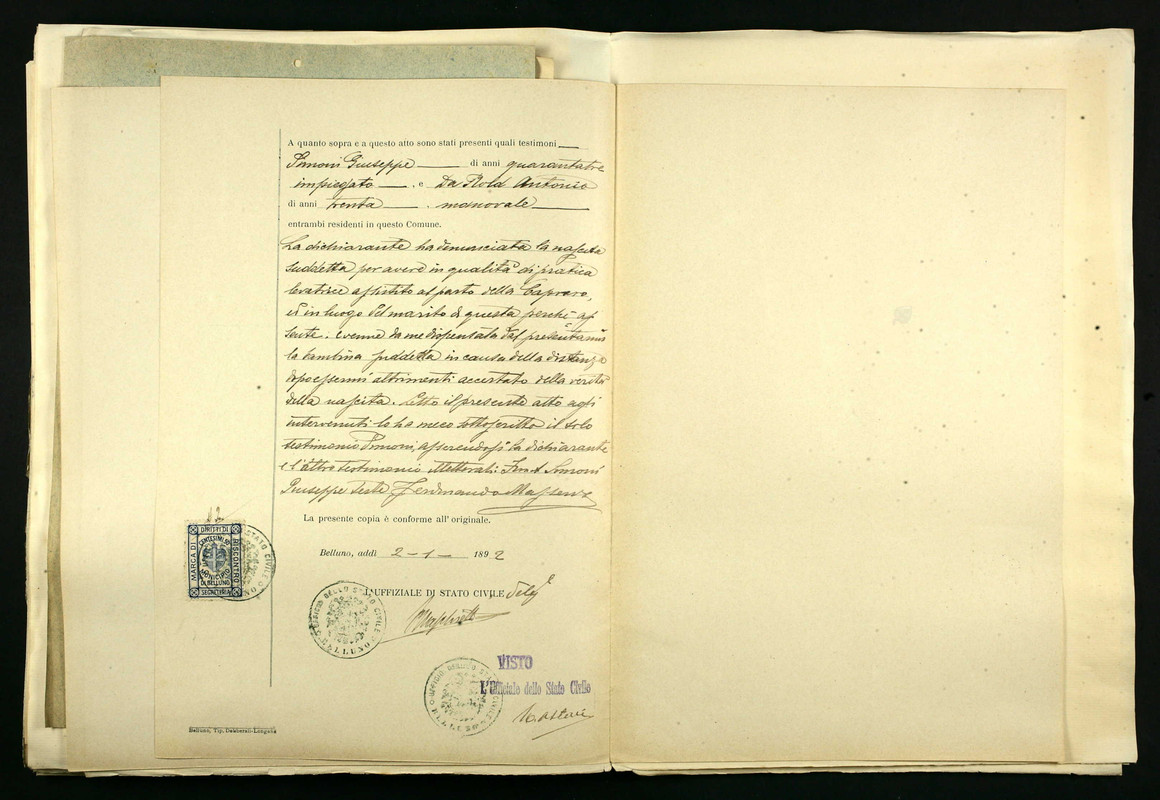 A quanto sopra e a questo atto sono stati presenti quali testimoni
Simoni Giuseppe di anni quarantatre
impiegato . e Da Rold Antonio
di anni trenta . manovale
entrambi residenti in questo Comune.
La dichiarante ha denunciata la nascita
suddetta per avere in qualità di pratica
levatrice assistito al parto della Capraro,
ed in luogo del marito di questa perchè as
sente. e venne da me dispensata dal presentarmi
la bambina suddetta in causa della distanza
dopo essermi altrimenti accertato della verità
della nascita. Letto il presente atto agli
intervenuti lo ha meco sottoscritto il solo
testimonio Simoni, asserendosi la dichiarante
e l'altro testimonio illetterati. Simoni
Giuseppe teste Ferdinando
La presente copia è conforme all' originale.
Belluno, addì 2-1- 1892
L'UFFIZIALE DI STATO CIVILE
MARCA DI RISCONTRO
DIRITTI DI SEGRETERIA
MUNICIPIO DI BELLUNO
UFFICIO DELLO STATO CIVILE BELLUNO
VISTO
L'Ufficiale dello Stato Civile
Belluno, Tip. Deliberali-Longana